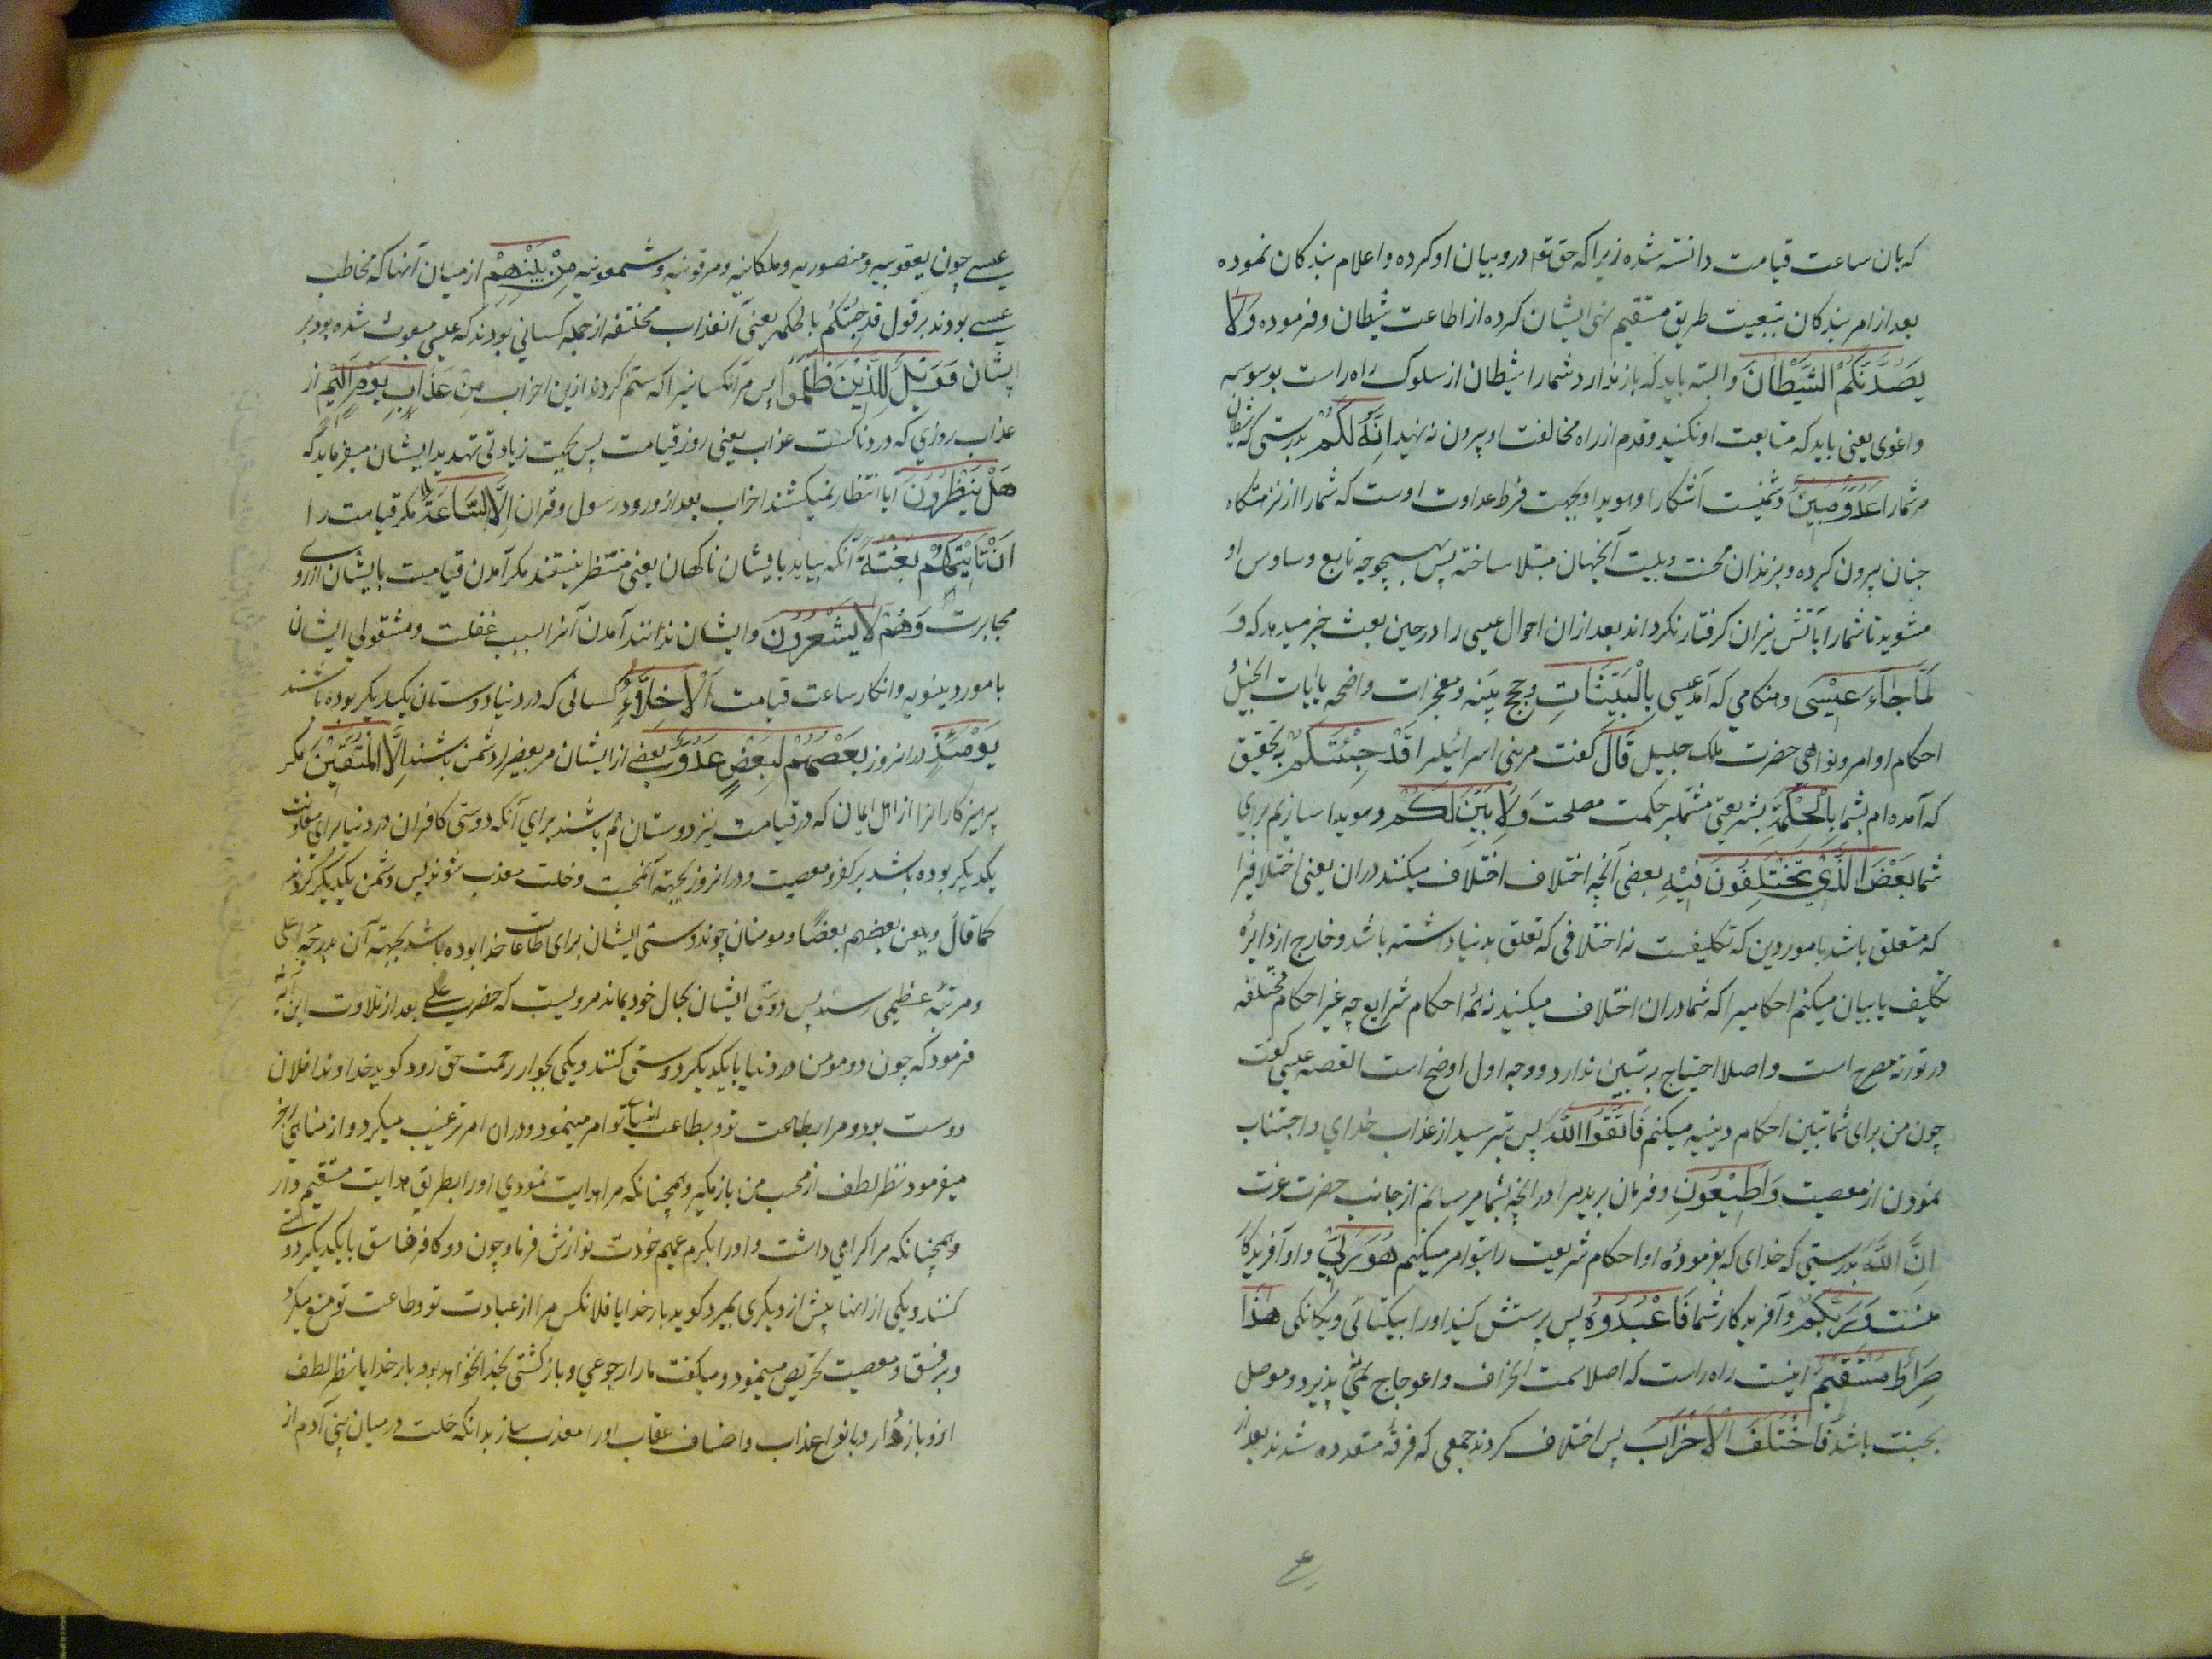 که بان ساعت قیامت دانسته شده زیرا که حق تعم درو بیان او کرده و اعلام بندکان نموده
بعد از امر بندکان بتبعیت طریق مستقیم نهی ایشان کرده از اطاعت شیطان و فرموده وَلَا
یَصُدَّنَّکُمُ الشَّیْطَانَ و البته باید که باز ندارد شما را شیطان از سلوک راه راست بوسوسه
و اغوی یعنی باید که متابعت او نکنید و قدم از راه مخالفت او بیرون نه نهید اِنَّهُ لَکُمْ بدرستی که شیطان
مر شما را عَدُوٌّ مُبِینٌ دشمنیست آشکارا و هویدا و بجهت فرط عداوت اوست که شما را از نزهتکاه
جنان بیرون کرده و بزندان محنت و بلیت آنجهان مبتلا ساخته پس بهیچوجه تابع وساوس او
مشوید تا شما را بآتش نیزان کرفتار نکرداند بعد ازان احوال عیسی را در حین بعث خبر میدهد که وَ
لَمَّا جَاءَ عِیْسَی و هنکامی که آمد عیسی بِالْبَیِّنَاتِ و حجج بیّنه و معجزات واضحه یا بایات انجیل
احکام اوامر و نواهی حضرت ملک جلیل قَالَ کفت مر بنی اسرائیلرا قَدْ جِئْتُکُمْ بتحقیق
که آمده ام بشما بِالْحِکْمَةِ بشریعتی مشتمل بر حکمت مصلحت وَلِاُبَیِّنَ لَکُمْ و هویدا سازیم برای
شما بَعْضَ الَّذِی تَخْتَلِفُونَ فِیْهِ بعضی آنچه اختلاف میکنند دران یعنی اختلافیرا
که متعلق باشد بامور دین که تکلیفست نه اختلافی که تعلق بدنیا داشته باشد و خارج از دایرهٔ
تکلیف یا بیان میکنم احکامیرا که شما دران اختلاف میکنید نه همهٔ احکام شرایع چه غیر احکام مختلفه
در توریة مصرح است و اصلا احتیاج به تبیین ندارد و وجه اول اوضح است القصه عیسی کفت
چون من برای شما تبیین احکام دینیه میکنم فَاتَّقُوا اللَّهَ پس بترسید از عذاب خدای و اجتناب
نمودن از معصیت وَاَطِیْعُونِ و فرمان برید مرا در آنچه بشما میرسانم از جانب حضرت عزت
اِنَّ اللَّهَ بدرستی که خدای که بفرمودهٔ او احکام شریعت را بتو امر میکنم هُوَ رَبِّی و او آفریدکار
منست وَرَبُّکُمْ و آفریدکار شما فَاعْبُدُوهُ پس پرستش کنید او را بیکتائی و یکانکی هٰذَا
صِرَاطٌ مُسْتَقِیْمٌ اینست راه راست که اصلا سمت انحراف و اعوجاج نمی پذیرد و موصل
بجنت باشد فَاخْتَلَفَ الْاَحْزَابُ پس اختلاف کردند جمعی که فرقهٔ متعدده شدند بعد از
عیسی چون یعقوبیه و منصوریه و ملکانیه و مرقونیه و شمعونیه مِنْ بَیْنِهِمْ از میان آنها که مخاطب
عیسی بودند بر قول قد جئتکم بالحکمه یعنی آنفذاب مختلفه از جمله کسانی بودند که عیسی مبعوث شده بود بر
ایشان فَوَیْلٌ لِلَّذِیْنَ ظَلَمُوا پس مر آنکسانیرا که ستم کردند ازین احزاب مِنْ عَذَابِ یَوْمٍ اَلِیْمٍ از
عذاب روزی که دردناکست عذاب یعنی روز قیامت پس بجهت زیادتی تهدید ایشان میفرماید که
هَلْ یَنْظُرُونَ ایا انتظار نمیکشند احزاب بعد از ورود رسول و قران اِلَّا السَّاعَةَ مکر قیامت را
اَنْ تَأْتِیَهُمْ بَغْتَةً آنکه بیاید بایشان ناکهان یعنی منتظر نیستند مکر آمدن قیامت بایشان از روی
مجابرت وَهُمْ لَا یَشْعُرُونَ و ایشان ندانند آمدن آنرا بسبب غفلت و مشغولی ایشان
بامور دینویه و انکار ساعت قیامت اَلْاَخِلَّاءُ کسانی که در دنیا دوستان یکدیکر بوده باشند
یَوْمَئِذٍ در انروز بَعْضُهُمْ لِبَعْضٍ عَدُوٌّ بعضی از ایشان مر بعضیرا دشمن باشند اِلَّا الْمُتَّقِیْنَ مکر
پرهیزکارانرا از اهل ایمان که در قیامت نیز دوستان هم باشند برای آنکه دوستی کافران در دنیا برای معاونت
یکدیکر بوده باشد بر کفر و معصیت و در انروز بجهة آنمحبت و خلت معذب شوند پس دشمن یکدیکر کردند
کما قال و یلعن بعضهم بعضًا و مومنان چون دوستی ایشان برای طاعات خدا بوده باشد بجهة آن بدرجهٔ اعلی
و مرتبهٔ عظیمی رسند پس دوستی ایشان بحال خود بماند مرویست که حضرت علی بعد از تلاوت این آیة
فرمود که چون دو مومن در دنیا با یکدیکر دوستی کنند و یکی بجوار رحمت حق رود کوید خداوندا فلان
دوست بود و مرا بطاعت تو و بطاعت انبیاء تو امر مینمود و دران امر ترغیب میکرد و از مناهی زجر
میفرمود نظر لطف از محب من باز مکیر و همچنانکه مرا هدایت نمودی او را بطریق هدایت مستقیم دار
و همچنانکه مرا کرامی داشت و او را بکرم عمیم خودت نوازش فرما و چون دو کافر فاسق با یکدیکر دوستی
کنند و یکی از انها پیش از دیکری بمیرد کوید بار خدایا فلانکس مرا از عبادت تو و طاعت تو منع میکرد
و بر فسق و معصیت تحریص مینمود و میکفت ما را رجوعی و بازکشتی بخدا نخواهد بود بار خدایا نظر لطف
ازو باز دار و بانواع عذاب و اضناف عقاب او را معذب ساز بدانکه خلت در میان بنی آدم از